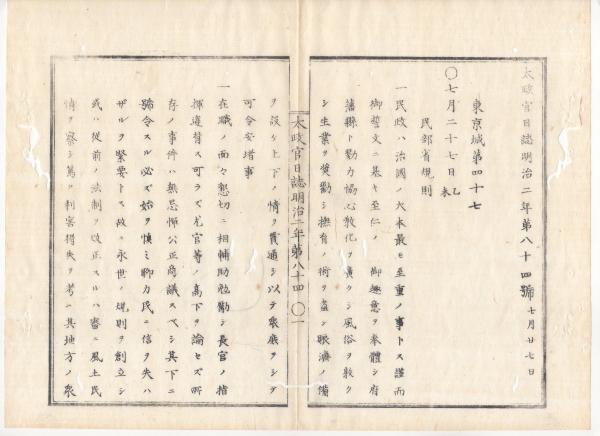 太政官日誌明治二年第八十四號 七月廿七日
東京城第四十七
〇七月二十七日 乙未
民部省規則
一民政ハ治國ノ大本最モ至重ノ事トス謹而
御誓文ニ基キ至仁ノ 御趣意ヲ奉體シ府
藩縣ト勠力協心教化ヲ廣クシ風俗ヲ敦ク
シ生業ヲ奨勸シ撫育ノ術ヲ盡シ賑濟ノ備
太政官日誌明治二年第八十四 〇一
ヲ設ケ上下ノ情ヲ貫通シ以テ衆庶ヲシテ
可令安堵事
一在職ノ面々懇切ニ相輔助勉勵シ長官ノ指
揮違背ス可ラズ尤官等ノ高下ヲ論セズ所
存ノ事件ハ無忌憚公正商議スベシ其下ニ
號令スル必ズ始ヲ愼ミ聊カ民ニ信ヲ失ハ
ザルヲ緊要トス故ニ永世ノ規則ヲ創立シ
或ハ從前ノ法制ヲ改正スルハ審ニ風土民
情ヲ察シ篤ク利害得失ヲ考ニ其地方ノ衆